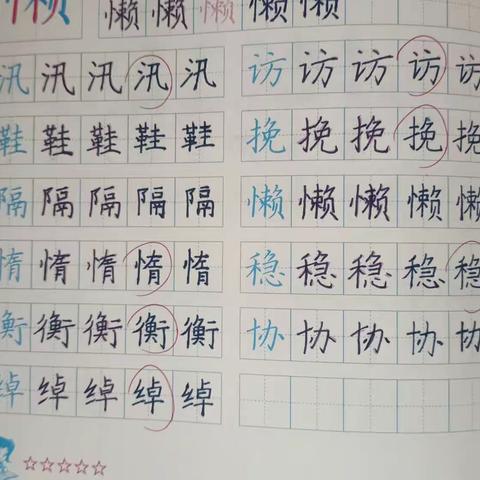 懒 懒 懒 懒 懒 懒
汛 汛 汛 汛 汛
访 访 访 访 访
鞋 鞋 鞋 鞋 鞋
挽 挽 挽 挽 挽
隔 隔 隔 隔 隔
懒 懒 懒 懒 懒
惰 惰 惰 惰 惰
稳 稳 稳 稳 稳
衡 衡 衡 衡 衡
协 协 协 协 协
绰 绰 绰 绰 绰